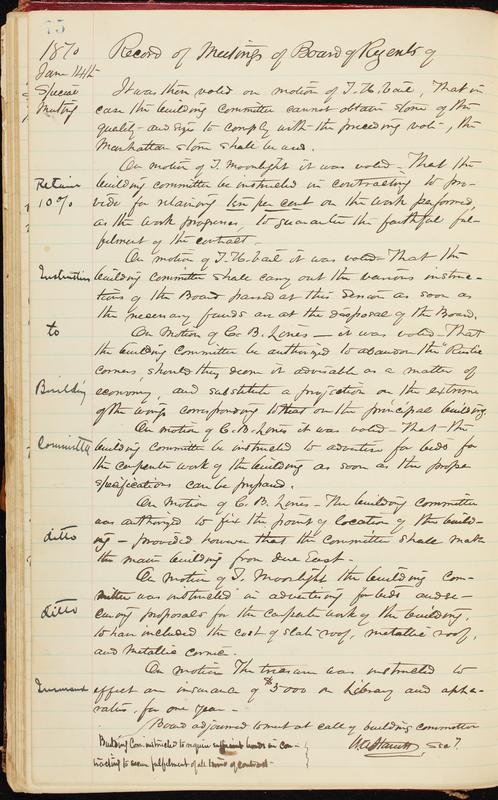 75
1870
Record of Meetings of Board of Regents of
Jan 14th
Special
Meeting
It was then voted on motion of T. H. Vail, That in
case the building committee cannot obtain stone of the
quality and size to comply with the preceding vote, the
Manhattan stone shall be used.
On motion of T. Moonlight it was voted - That the
Retain
10%
building committee be instructed in contracting to pro-
vide for retaining ten per cent on the work performed,
as the work progresses, to guarantee the faithful ful-
filment of the contract -
On motion of T. H. Vail it was voted - That the
Instruction
building committee shall carry out the various instruc-
tions of the Board passed at this session as soon as
the necessary funds are at the disposal of the Board.
to
On Motion of C. B. Lines - it was voted That
the building Committee be authorized to abandon the "Rustic
corners, should they deem it advisable as a matter of
Building
economy, and substitute a projection on the extreme
of the wings corresponding to that on the principal building
On motion of C. B. Lines it was voted - That the
Committee
building committee be instructed to advertise for bids for
the carpenter work of the building as soon as the proper
specifications can be prepared.
On Motion of C. B. Lines - The building committee
was authorized to fix the point of location of the build-
ditto
ing - provided however that the Committee shall make
the main building front due East -
On Motion of T. Moonlight the building com-
mittee was instructed in advertising for bids and se-
ditto
curing proposals for the carpenter work of the building,
to have included the cost of slate roof, metallic roof,
and metallic cornice.
On motion The treasurer was instructed to
Insurance
effect an insurance of $5000 on Library and appa-
ratus, for one year -
Board adjourned to meet at call of building committee
Building Com. instructed to require sufficient bonds in con-
tracting to secure fulfilment of all terms of contract -
Secy.